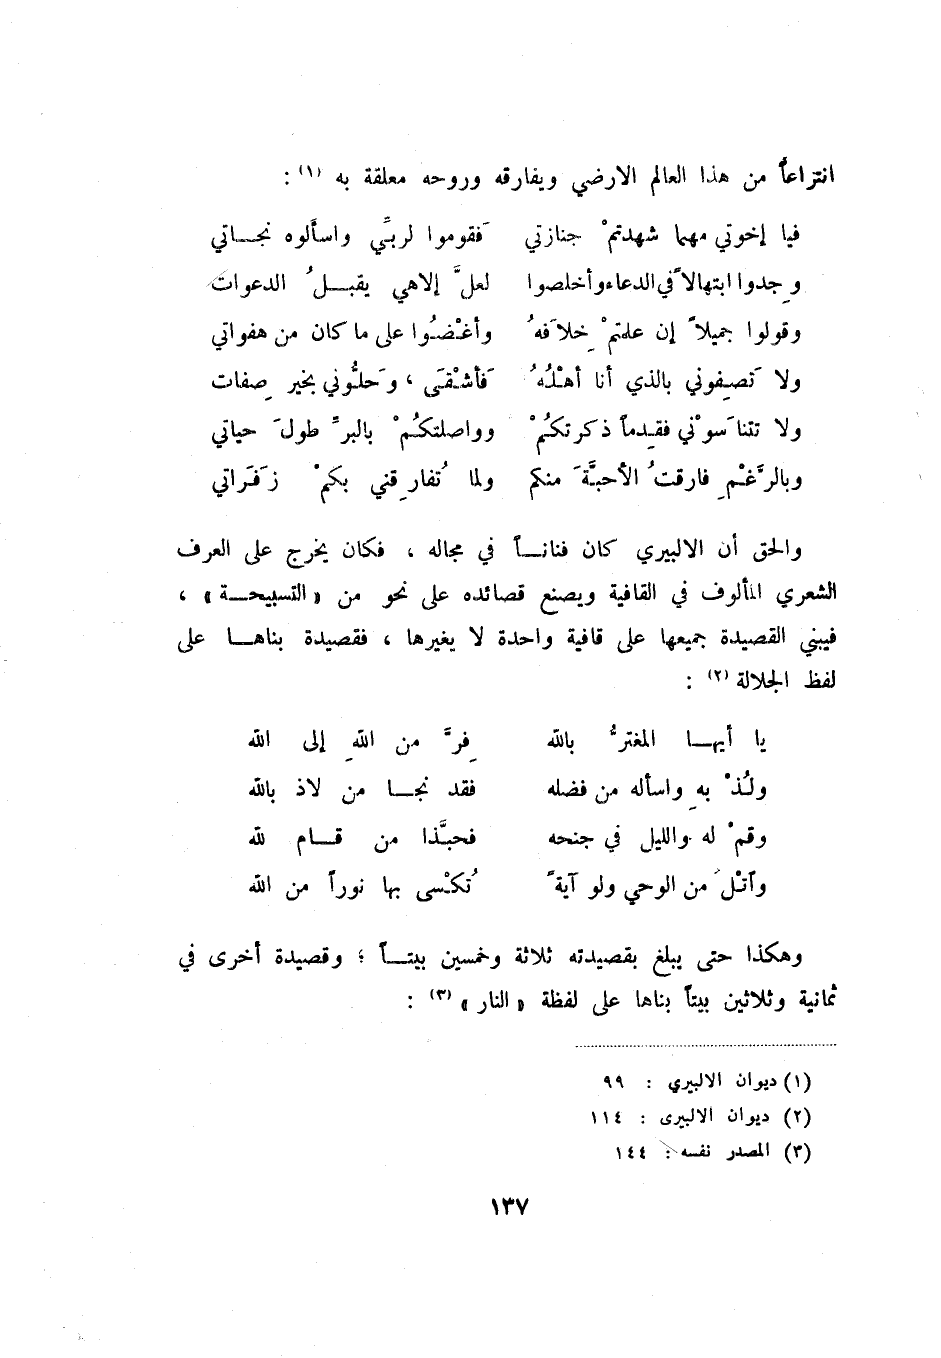 انتزاعاً من هذا العالم الارضي ويفارقه وروحه معلقة به (١) :
فيا إخوتي مهما شهدتمْ جنازتي فقوموا لربّي واسألوه نجاتي
وجِدوا ابتهالاً في الدعاء وأخلصوا لعلَّ إلاهي يقبلُ الدعوات
وقولوا جميلاً إن علمتمْ خِلافَهُ وأغْضُوا على ما كان من هفواتي
ولا تَصِفوني بالذي أنا أهْلُهُ فأشْقَى ، وحَلُّوني بخير صِفات
ولا تتناسَوْني فقِدماً ذكرتكُمْ وواصلتكُمْ بالبرِّ طولَ حياتي
وبالرَّغْمِ فارقتُ الأحبَّةَ منكم ولما تُفارِقني بكمْ زَفَراتي
والحق أن الالبيري كان فناناً في مجاله ، فكان يخرج على العرف
الشعري المألوف في القافية ويصنع قصائده على نحو من «التسبيحة» ،
فيبني القصيدة جميعها على قافية واحدة لا يغيرها ، فقصيدة بناها على
لفظ الجلالة (٢) :
يا أيها المغترُّ بالله فِرَّ من اللهِ إلى الله
ولُذْ بهِ واسأله من فضله فقد نجا من لاذ بالله
وقمْ له والليل في جنحه فحبَّذا من قام لله
وآتْلُ من الوحي ولو آيةً تُكْسى بها نوراً من الله
وهكذا حتى يبلغ بقصيدته ثلاثة وخمسين بيتاً ؛ وقصيدة أخرى في
ثمانية وثلاثين بيتاً بناها على لفظة « النار » (٣) :
(١) ديوان الالبيري : ٩٩
(٢) ديوان الالبيرى : ١١٤
(٣) المصدر نفسه : ١٤٤
١٣٧